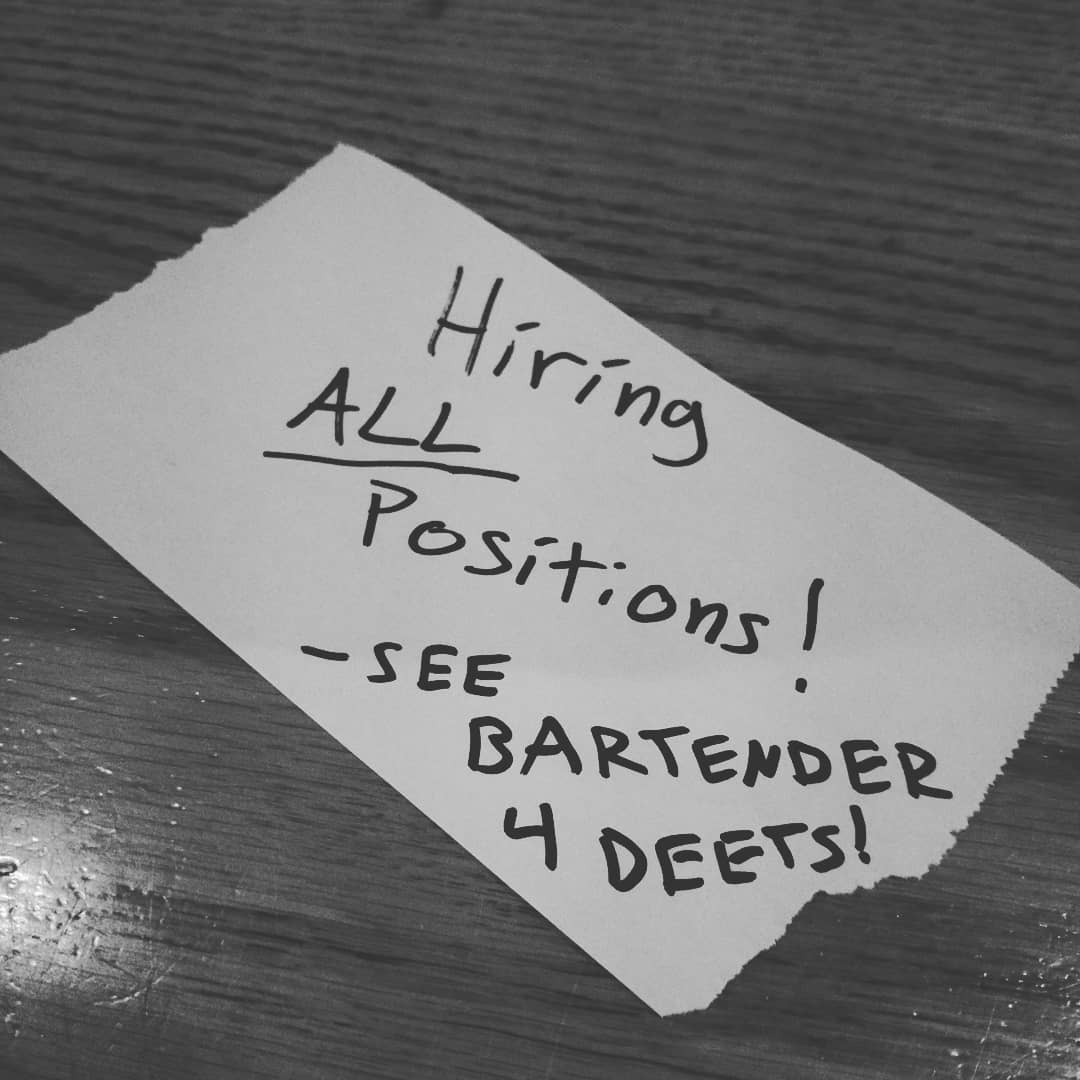 Hiring
ALL
Positions!
- SEE
BARTENDER
4 DEETS!